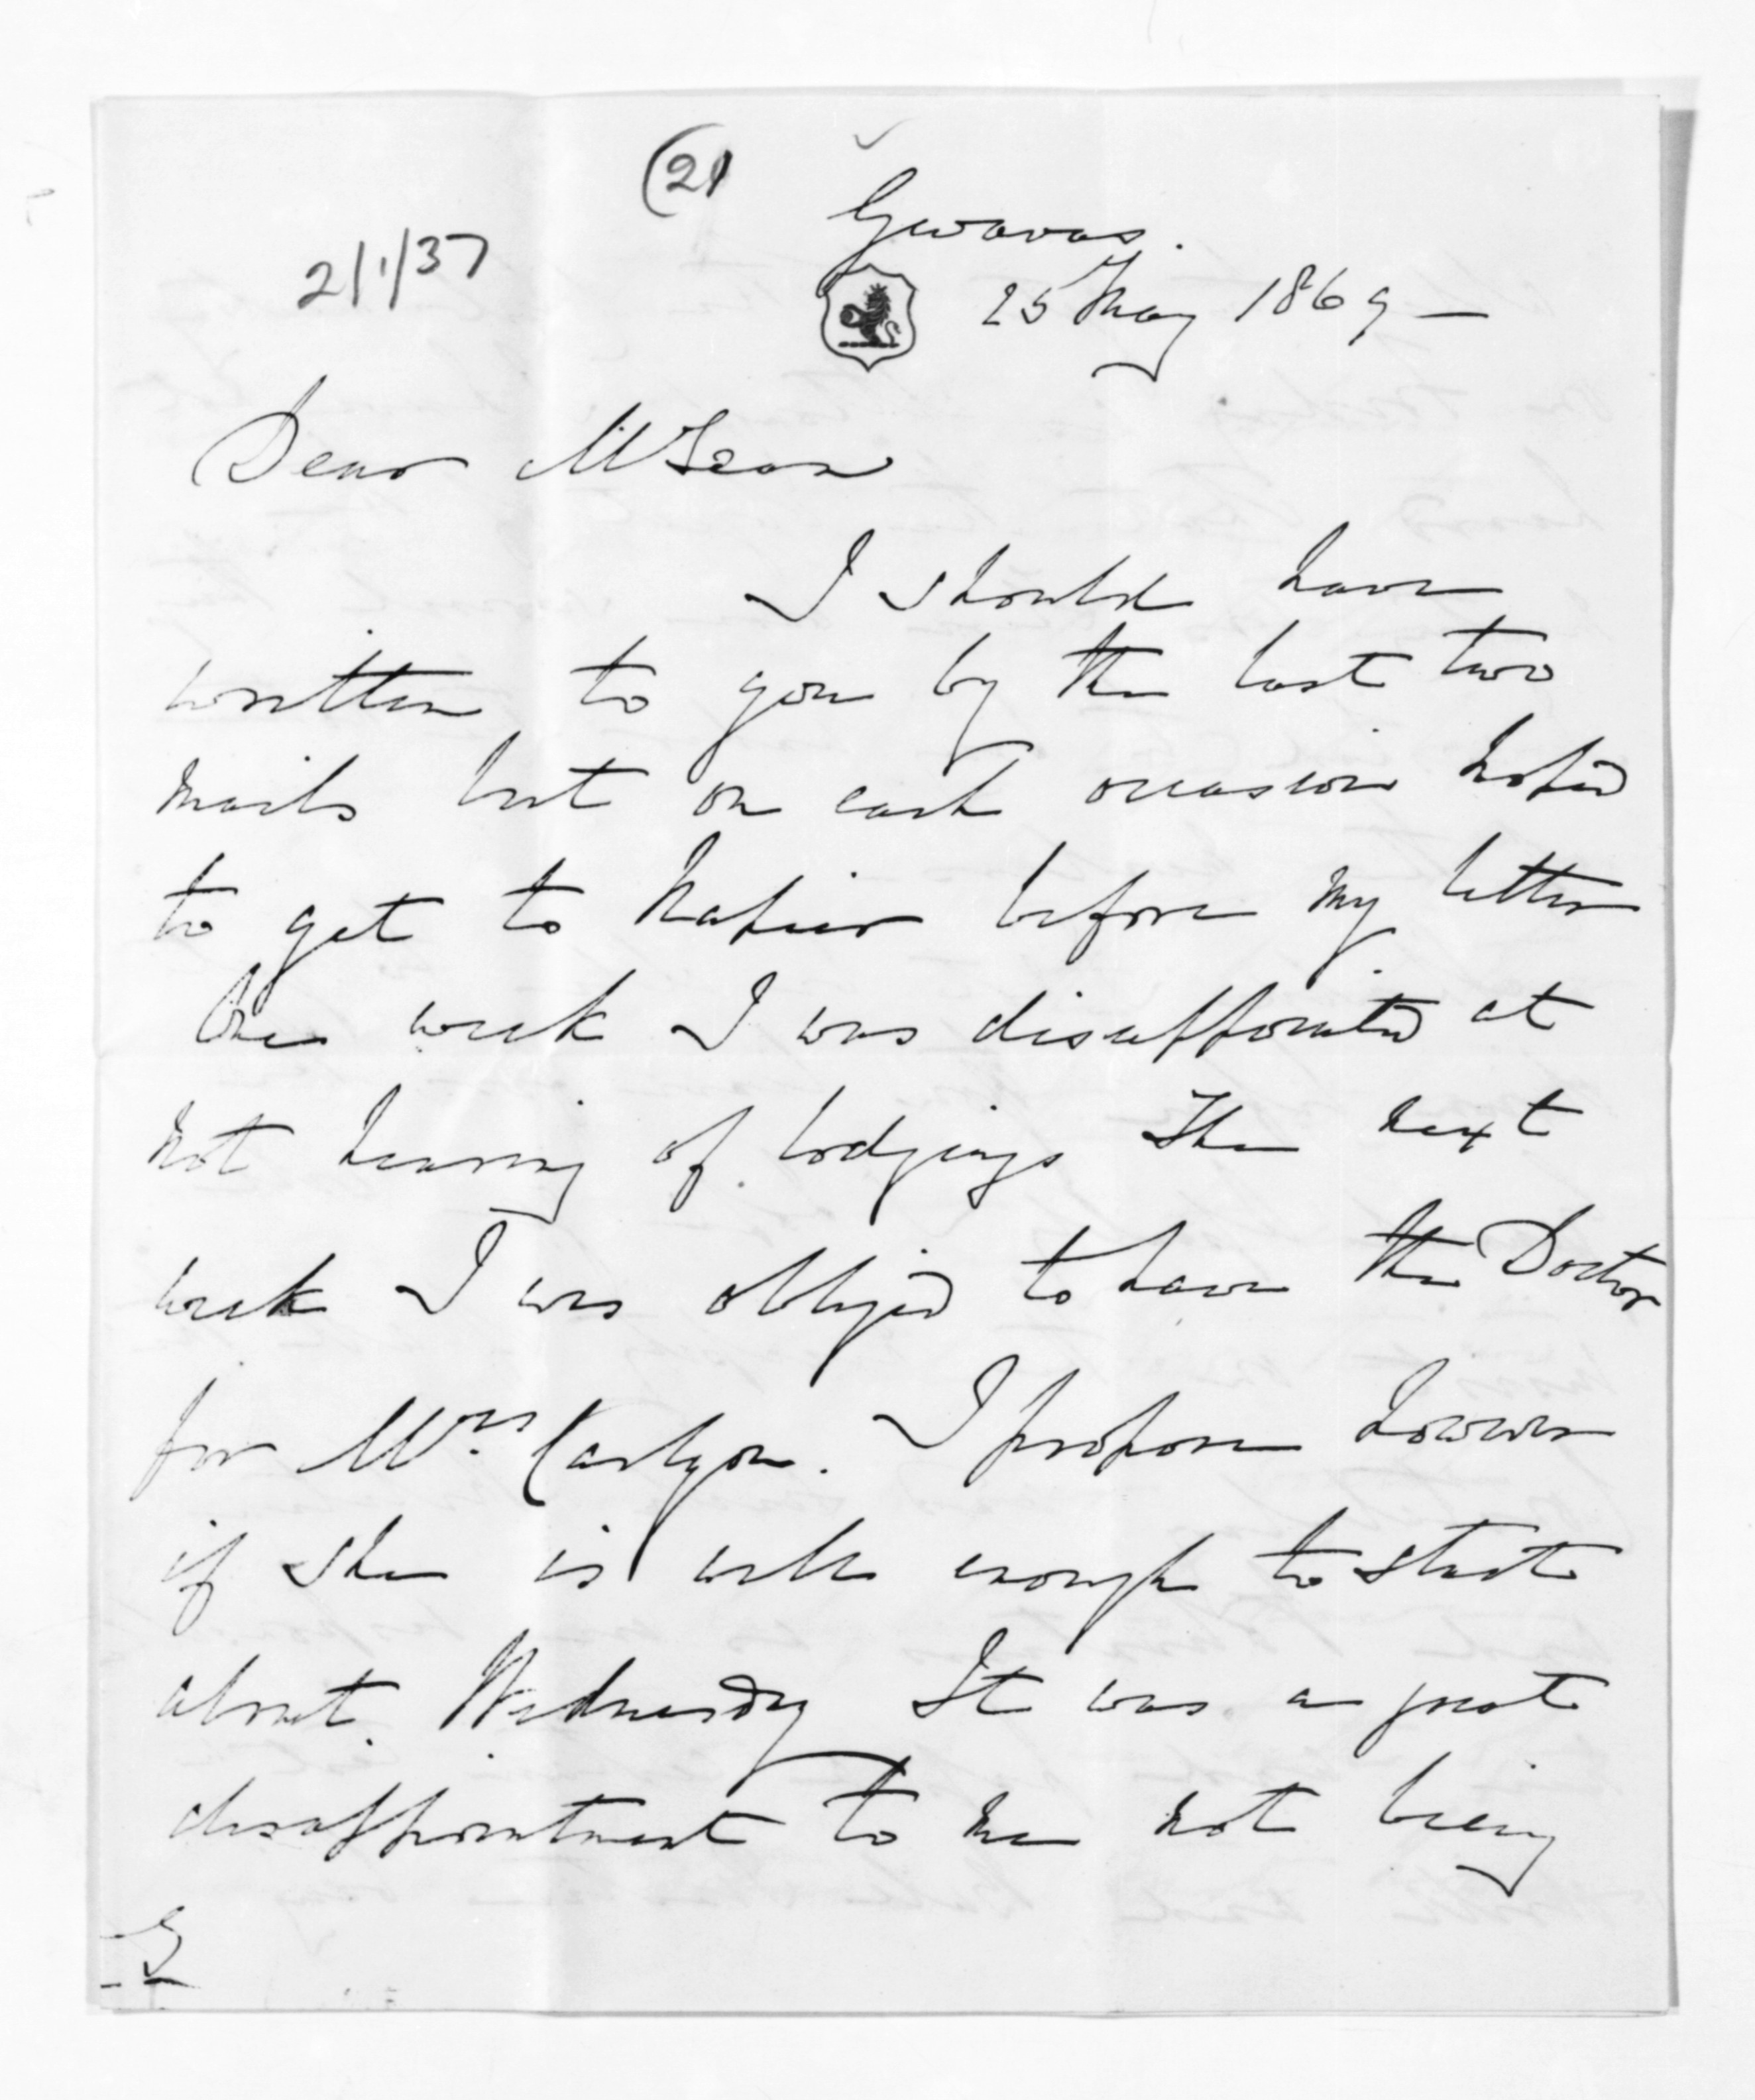 (21
2/1/37
Gwavas.
25 May 1869 —
Dear McLean
I should have
written to you by the last two
mails but on each occasion hoped
to get to Napier before my letter
One week I was disappointed at
not hearing of lodgings The next
week I was obliged to have the Doctor
for Mrs. Carlyon. I propose however
if she is well enough to start
about Wednesday It was a great
disappointment to me not being